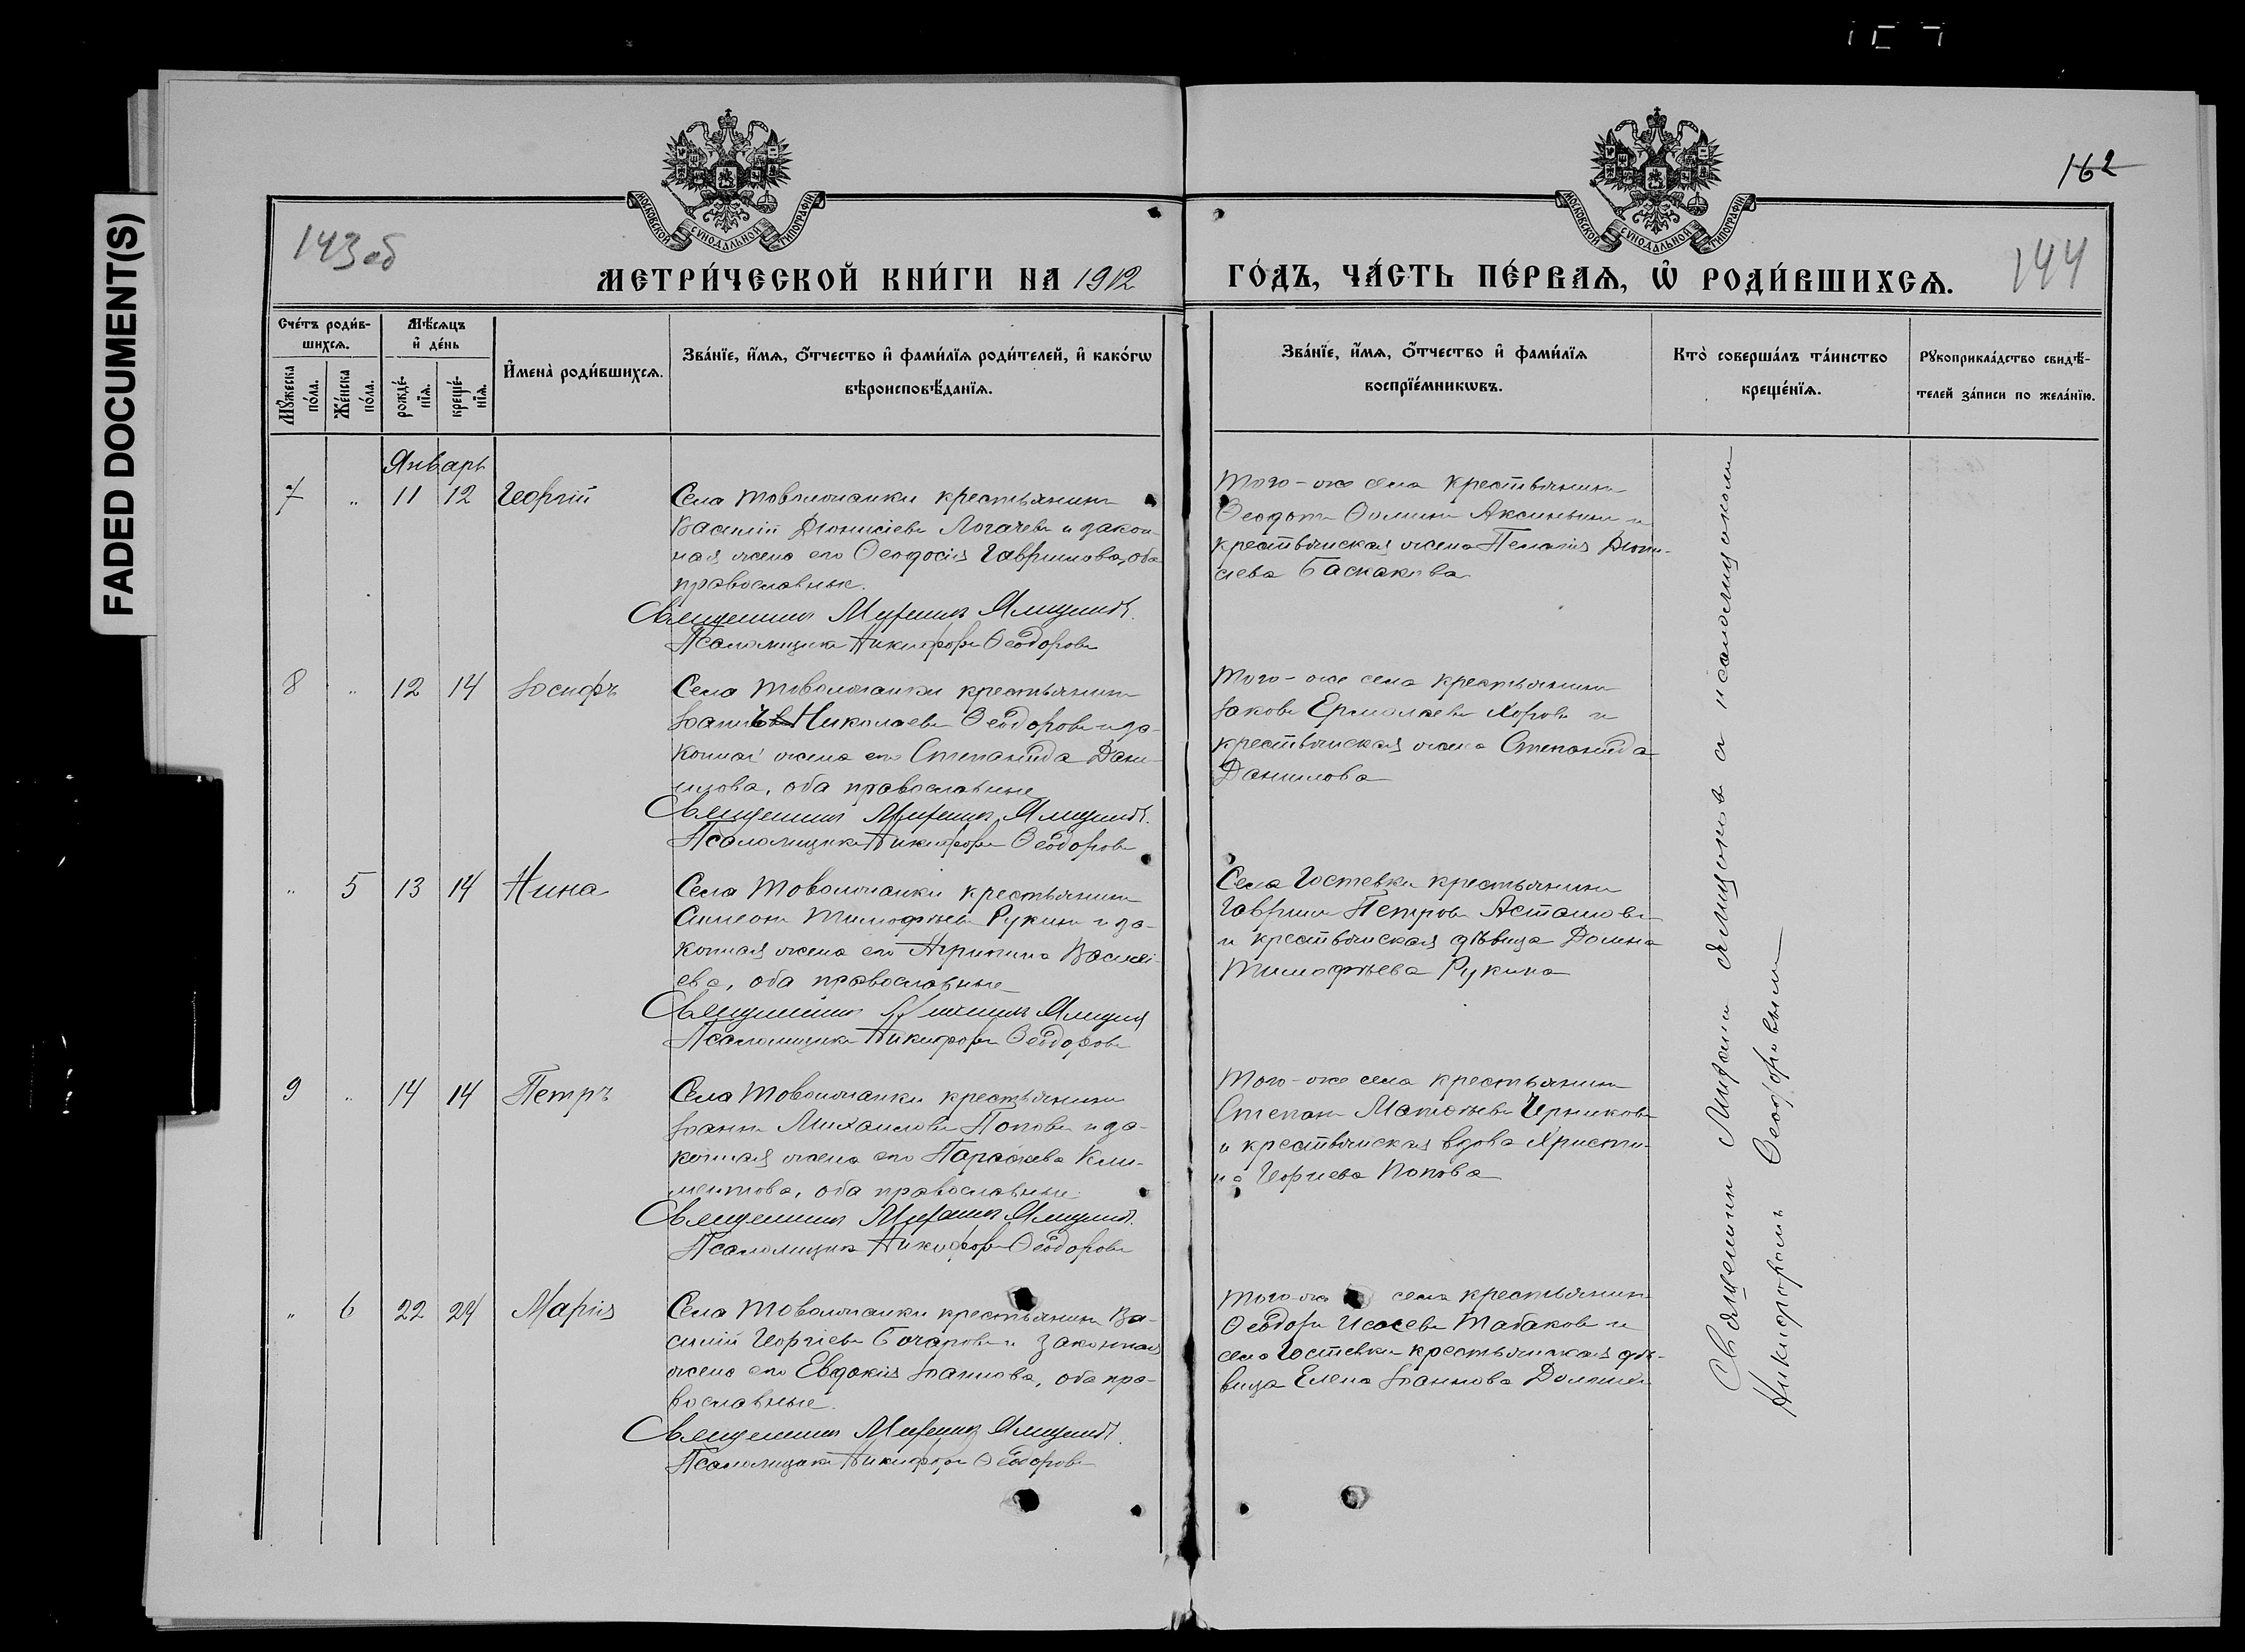 FADED DOCUMENT(S)
162
143об
144
МОСКОВСКОЙ СѴНОДАЛЬНОЙ ТИПОГРАФІИ
МОСКОВСКОЙ СѴНОДАЛЬНОЙ ТИПОГРАФІИ
МЕТРИ́ЧЕСКОЙ КНИ́ГИ НА 1912
ГО́ДЪ, ЧА́СТЬ ПЕ́РВАѦ, Ѡ҆ РОДИ́ВШИХСѦ.
Сче́тъ роди́в-
шихсѧ.
Мꙋ́жеска по́ла.
Же́нска по́ла.
Мѣ́сѧцъ
и҆ де́нь
рожде́-
нїѧ.
креще́-
нїѧ.
И҆мена̀ роди́вшихсѧ.
Зва́нїе, и҆́мѧ, ѻ҆́тчество и҆ фами́лїѧ роди́телей, и҆ како́гѡ
вѣроисповѣ́данїѧ.
Зва́нїе, и҆́мѧ, ѻ҆́тчество и҆ фами́лїѧ
воспрїе́мникѡвъ.
Кто̀ соверша́лъ та́инство
креще́нїѧ.
Рꙋкоприкла́дство свидѣ́-
телей за́писи по жела́нїю.
Январь
7 " 11 12 Георгій
Села Товолжанки крестьянинъ
Василій Діонисіевъ Логачевъ и закон-
ная жена его Ѳеодосія Гаврилова, оба
православные.
Священникъ Миронъ Ямщиковъ.
Псаломщикъ Никифоръ Ѳеодоровъ
Того-же села крестьянинъ
Ѳеодотъ Ѳоминъ Аксиньинъ и
крестьянская жена Пелагія Діони-
сіева Баскакова
8 " 12 14 Іосифъ
Села Товолжанки крестьянинъ
Николаевъ Ѳеодоровъ и за-
конная жена его Степанида Дани-
илова, оба православные
Священникъ Миронъ Ямщиковъ.
Псаломщикъ Никифоръ Ѳеодоровъ
Того-же села крестьянинъ
Іаковъ Ермолаевъ Хоровъ и
крестьянская жена Степанида
Данилова
" 5 13 14 Нина
Села Товолжанки крестьянинъ
Симеонъ Тимофѣевъ Рукинъ и за-
конная жена его Агрипина Василі-
ева, оба православные
Священникъ Миронъ Ямщиковъ
Псаломщикъ Никифоръ Ѳеодоровъ
Села Гостевки крестьянинъ
Гавріилъ Петровъ Асташовъ
и крестьянская дѣвица Домна
Тимофѣева Рукина
9 " 14 14 Петръ
Села Товолжанки крестьянинъ
Іоаннъ Михаиловъ Поповъ и за-
конная жена его Параскева Кли-
ментова, оба православные.
Священникъ Миронъ Ямщиковъ.
Псаломщикъ Никифоръ Ѳеодоровъ
Того-же села крестьянинъ
Степанъ Матвѣевъ Черниковъ
и крестьянская вдова Христи-
на Георгіева Попова
" 6 22 24 Марія
Села Товолжанки крестьянинъ Ва-
силій Георгіевъ Бочаровъ и законная
жена его Евдокія Іоаннова, оба пра-
вославные.
Священникъ Миронъ Ямщиковъ.
Псаломщикъ Никифоръ Ѳеодоровъ
Того-же села крестьянинъ
Ѳеодоръ Исаевъ Табаковъ и
села Гостевки крестьянская дѣ-
вица Елена Іоаннова
Священникъ Миронъ Ямщиковъ съ псаломщикомъ
Никифоромъ Ѳеодоровымъ